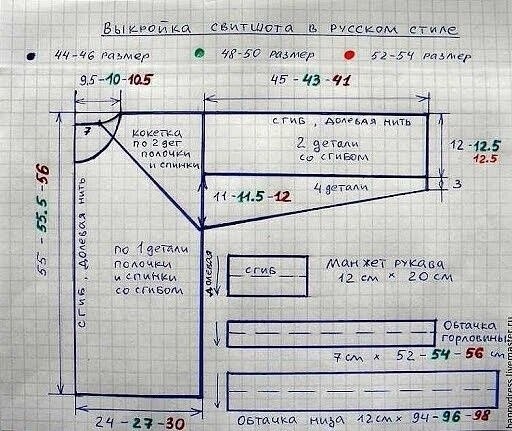 Выкройка свитшота в русском стиле
44-46 размер
48-50 размер
52-54 размер
9.5-10-10.5
45-43-41
7
кокетка
по 2 дет
полочки
и спинки
сгиб, долевая нить
2 детали
со сгибом
12-12.5
12.5
4 детали
3
11-11.5-12
55-55.5-56
сгиб, долевая нить
по 1 детали
полочки
и спинки
со сгибом
долевая
сгиб
Манжет рукава
12 см × 20 см
Обтачка
горловины
7 см × 52-54-56 см
24-27-30
Обтачка низа 12см × 94-96-98
happydress.livemaster.ru